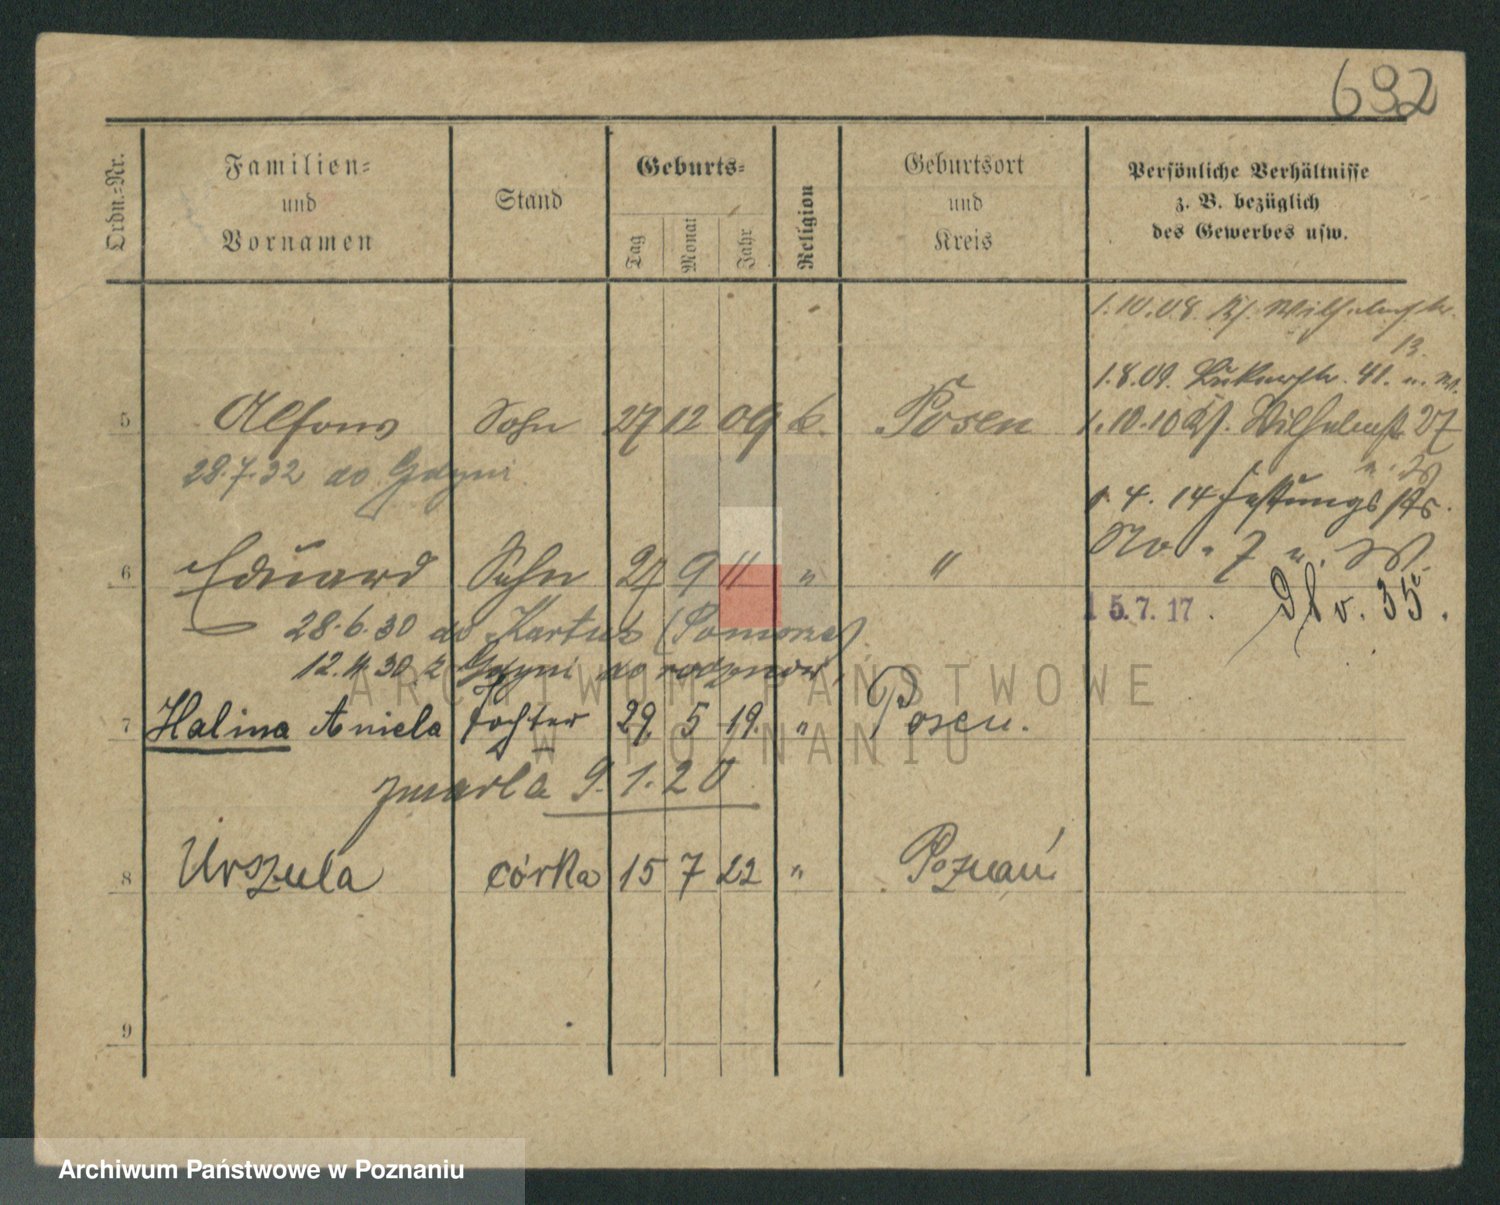 692
Ordn.-Nr.
Familien-
und
Vornamen
Stand
Geburts-
Tag
Monat
Jahr
Religion
Geburtsort
und
Kreis
Persönliche Verhältnisse
z. B. bezüglich
des Gewerbes usw.
1.10.08. Wilhelmstr.
13.
1.8.09. 41.
5 Alfons Sohn 27 12 09 k. Posen 1.10.10 Wilhelmstr. 27
28.7.32 do Gdyni
1. 4. 14 Festungsstr.
6 Eduard Sohn 27 9 11 " " No 7
15.7.17. v. 35.
28.6.30 do Kartuz (Pomorze)
12.11.30 z Gdyni do rodziców
7 Halina Aniela Tochter 29. 5 19. " Posen.
zmarła 9.1.20
8 Urszula córka 15 7 22 " Poznań
9
ARCHIWUM PAŃSTWOWE
W POZNANIU
Archiwum Państwowe w Poznaniu